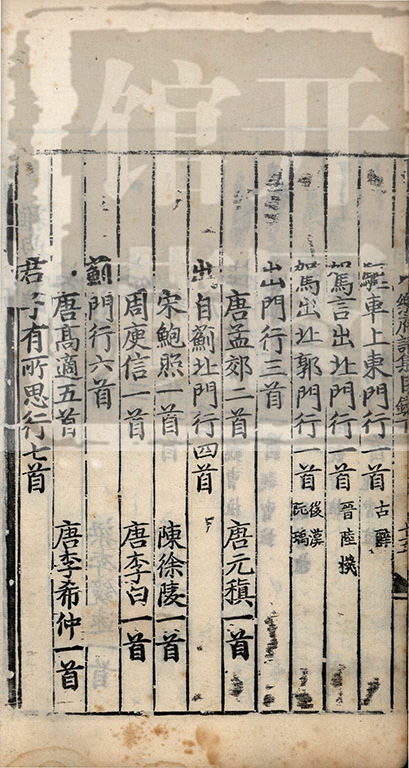 驅車上東門行一首 古辭
駕言出北門行一首 晉陸機
駕出北郭門行一首 後漢阮瑀
出門行三首
唐孟郊二首 唐元稹一首
出自薊北門行四首
宋鮑照一首 陳徐陵一首
周庾信一首 唐李白一首
薊門行六首
唐高適五首 唐李希仲一首
君子有所思行七首